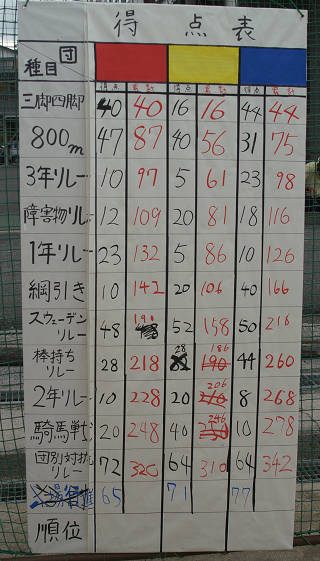 得点表
団
種目
得点 累計 得点 累計 得点 累計
三脚四脚 40 40 16 16 44 44
800m 47 87 40 56 31 75
3年リレー 10 97 5 61 23 98
障害物リレー 12 109 20 81 18 116
1年リレー 23 132 5 86 10 126
綱引き 10 142 20 106 40 166
スウェーデンリレー 48 190 52 158 50 216
棒持ちリレー 28 218 28 186 44 260
2年リレー 10 228 20 206 8 268
騎馬戦 20 248 40 246 10 278
団別対抗リレー 72 320 64 310 64 342
65 71 77
順位